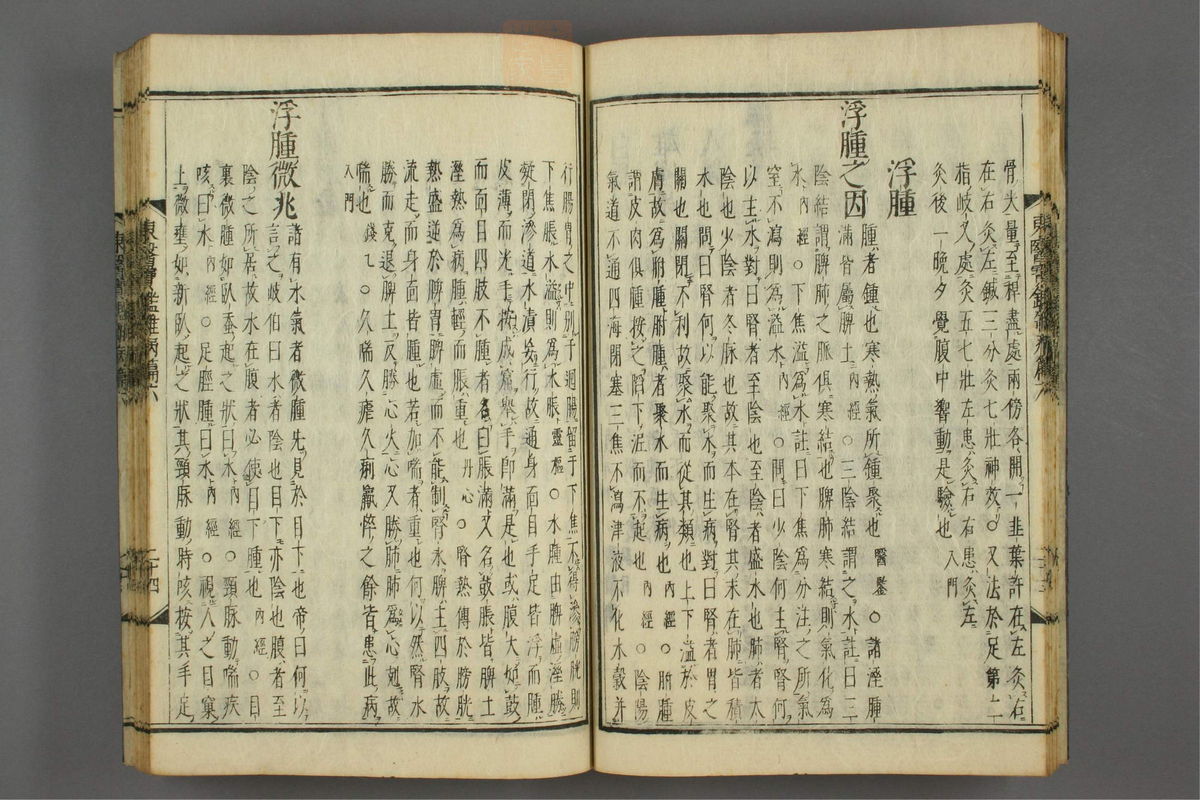 骨大量至稈盡處兩傍各開一韭葉許在左灸右
在右灸左鍼三分灸七壯神效○又法於足第二
指岐叉處灸五七壯左患灸右右患灸左
灸後一晩夕覺腹中響動是驗也入門
浮腫
浮腫之因
腫者鍾也寒熱氣所鍾聚也醫鑒○諸溼腫
滿皆屬脾土內經○三陰結謂之水註曰三
陰結謂脾肺之脈俱寒結也脾肺寒結則氣化爲
水內經○下焦溢爲水註曰下焦爲分注之所氣
窒不瀉則爲溢水內經○問曰少陰何主腎腎何
以主水對曰腎者至陰也至陰者盛水也肺者太
陰也少陰者冬脉也故其本在腎其末在肺皆積
水也問曰腎何以能聚水而生病對曰腎者胃之
關也關閉不利故聚水而從其類也上下溢於皮
膚故爲胕腫胕腫者聚水而生病也內經○胕腫
謂皮肉俱腫按之陷下泥而不起也內經○陰陽
氣道不通四海閉塞三焦不瀉津液不化水穀并
行腸胃之中別于迴腸留于下焦不得滲膀胱則
下焦脹水溢則爲水脹靈樞○水腫由脾虛溼勝
凝閉滲道水漬妄行故通身面目手足皆浮而腫
皮薄而光手按成窟擧手卽滿是也或腹大如鼓
而面目四肢不腫者名曰脹滿又名鼓脹皆脾土
溼熱爲病腫輕而脹重也丹心○腎熱傳於膀胱
熱盛逆於脾胃脾虛而不能制腎水脾主四肢故
流走而身面皆腫也若加喘者重也何以然腎水
勝而克退脾土反勝心火心又勝肺肺爲心剋故
喘也錢乙○久喘久瘧久痢羸悴之餘皆患此病
入門
浮腫微兆
諸有水氣者微腫先見於目下也帝曰何以
言之岐伯曰水者陰也目下亦陰也腹者至
陰之所居故水在腹者必使目下腫也內經○目
裏微腫如臥蚕起之狀曰水內經○頸脉動喘疾
咳曰水內經○足脛腫曰水內經○視人之目窠
上微壅如新臥起之狀其頸脉動時咳按其手足
東醫寶鑑雜病篇六
二十四